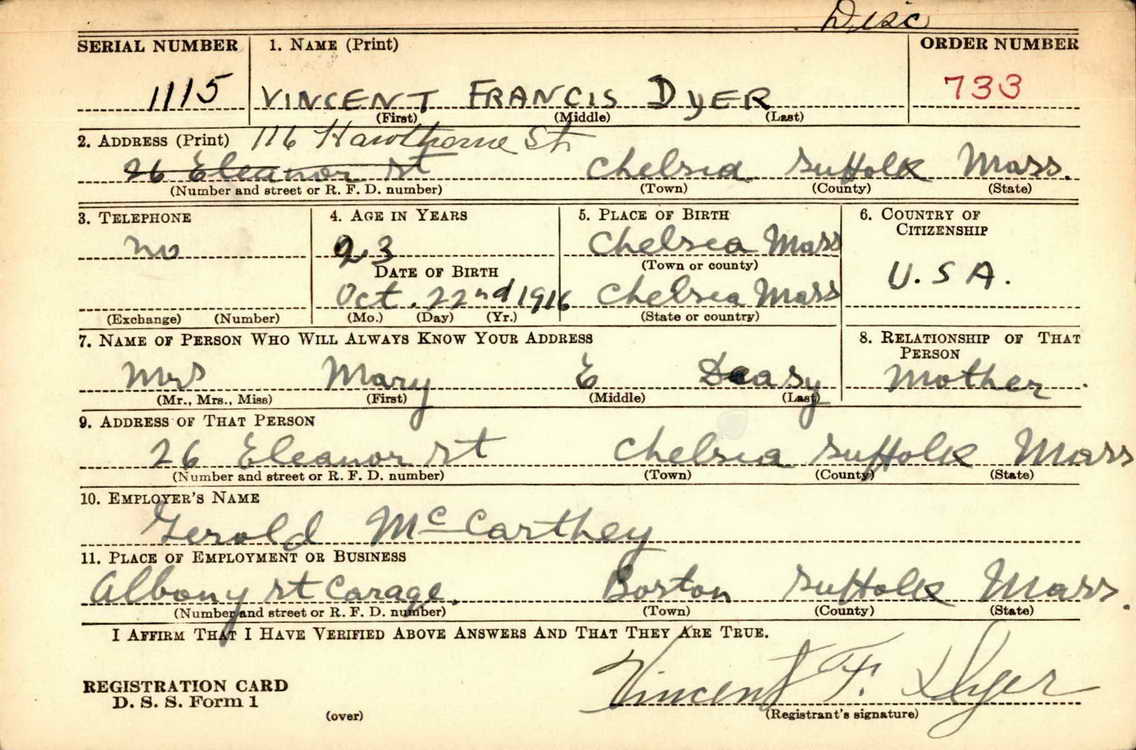 Disc
SERIAL NUMBER 1. NAME (Print) ORDER NUMBER
1115 VINCENT FRANCIS DYER 733
(First) (Middle) (Last)
2. ADDRESS (Print) 116 Hawthorne St
26 Eleanor St Chelsea Suffolk Mass.
(Number and street or R. F. D. number) (Town) (County) (State)
3. TELEPHONE 4. AGE IN YEARS 5. PLACE OF BIRTH 6. COUNTRY OF CITIZENSHIP
no 23 Chelsea Mass
(Town or county)
DATE OF BIRTH U.S A.
Oct. 22nd 1916 Chelsea Mass
(Exchange) (Number) (Mo.) (Day) (Yr.) (State or country)
7. NAME OF PERSON WHO WILL ALWAYS KNOW YOUR ADDRESS 8. RELATIONSHIP OF THAT PERSON
Mrs Mary E Deasy Mother
(Mr., Mrs., Miss) (First) (Middle) (Last)
9. ADDRESS OF THAT PERSON
26 Eleanor St Chelsea Suffolk Mass
(Number and street or R. F. D. number) (Town) (County) (State)
10. EMPLOYER'S NAME
Gerold McCarthey
11. PLACE OF EMPLOYMENT OR BUSINESS
Albony st Carage. Boston Suffolk Mass.
(Number and street or R. F. D. number) (Town) (County) (State)
I AFFIRM THAT I HAVE VERIFIED ABOVE ANSWERS AND THAT THEY ARE TRUE.
REGISTRATION CARD Vincent F. Dyer
D. S. S. Form 1 (over) (Registrant's signature)